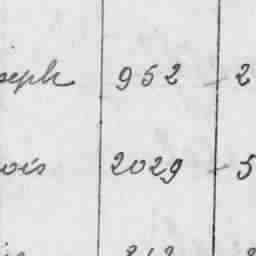 seph 952 - 2
ois 2029 - 5